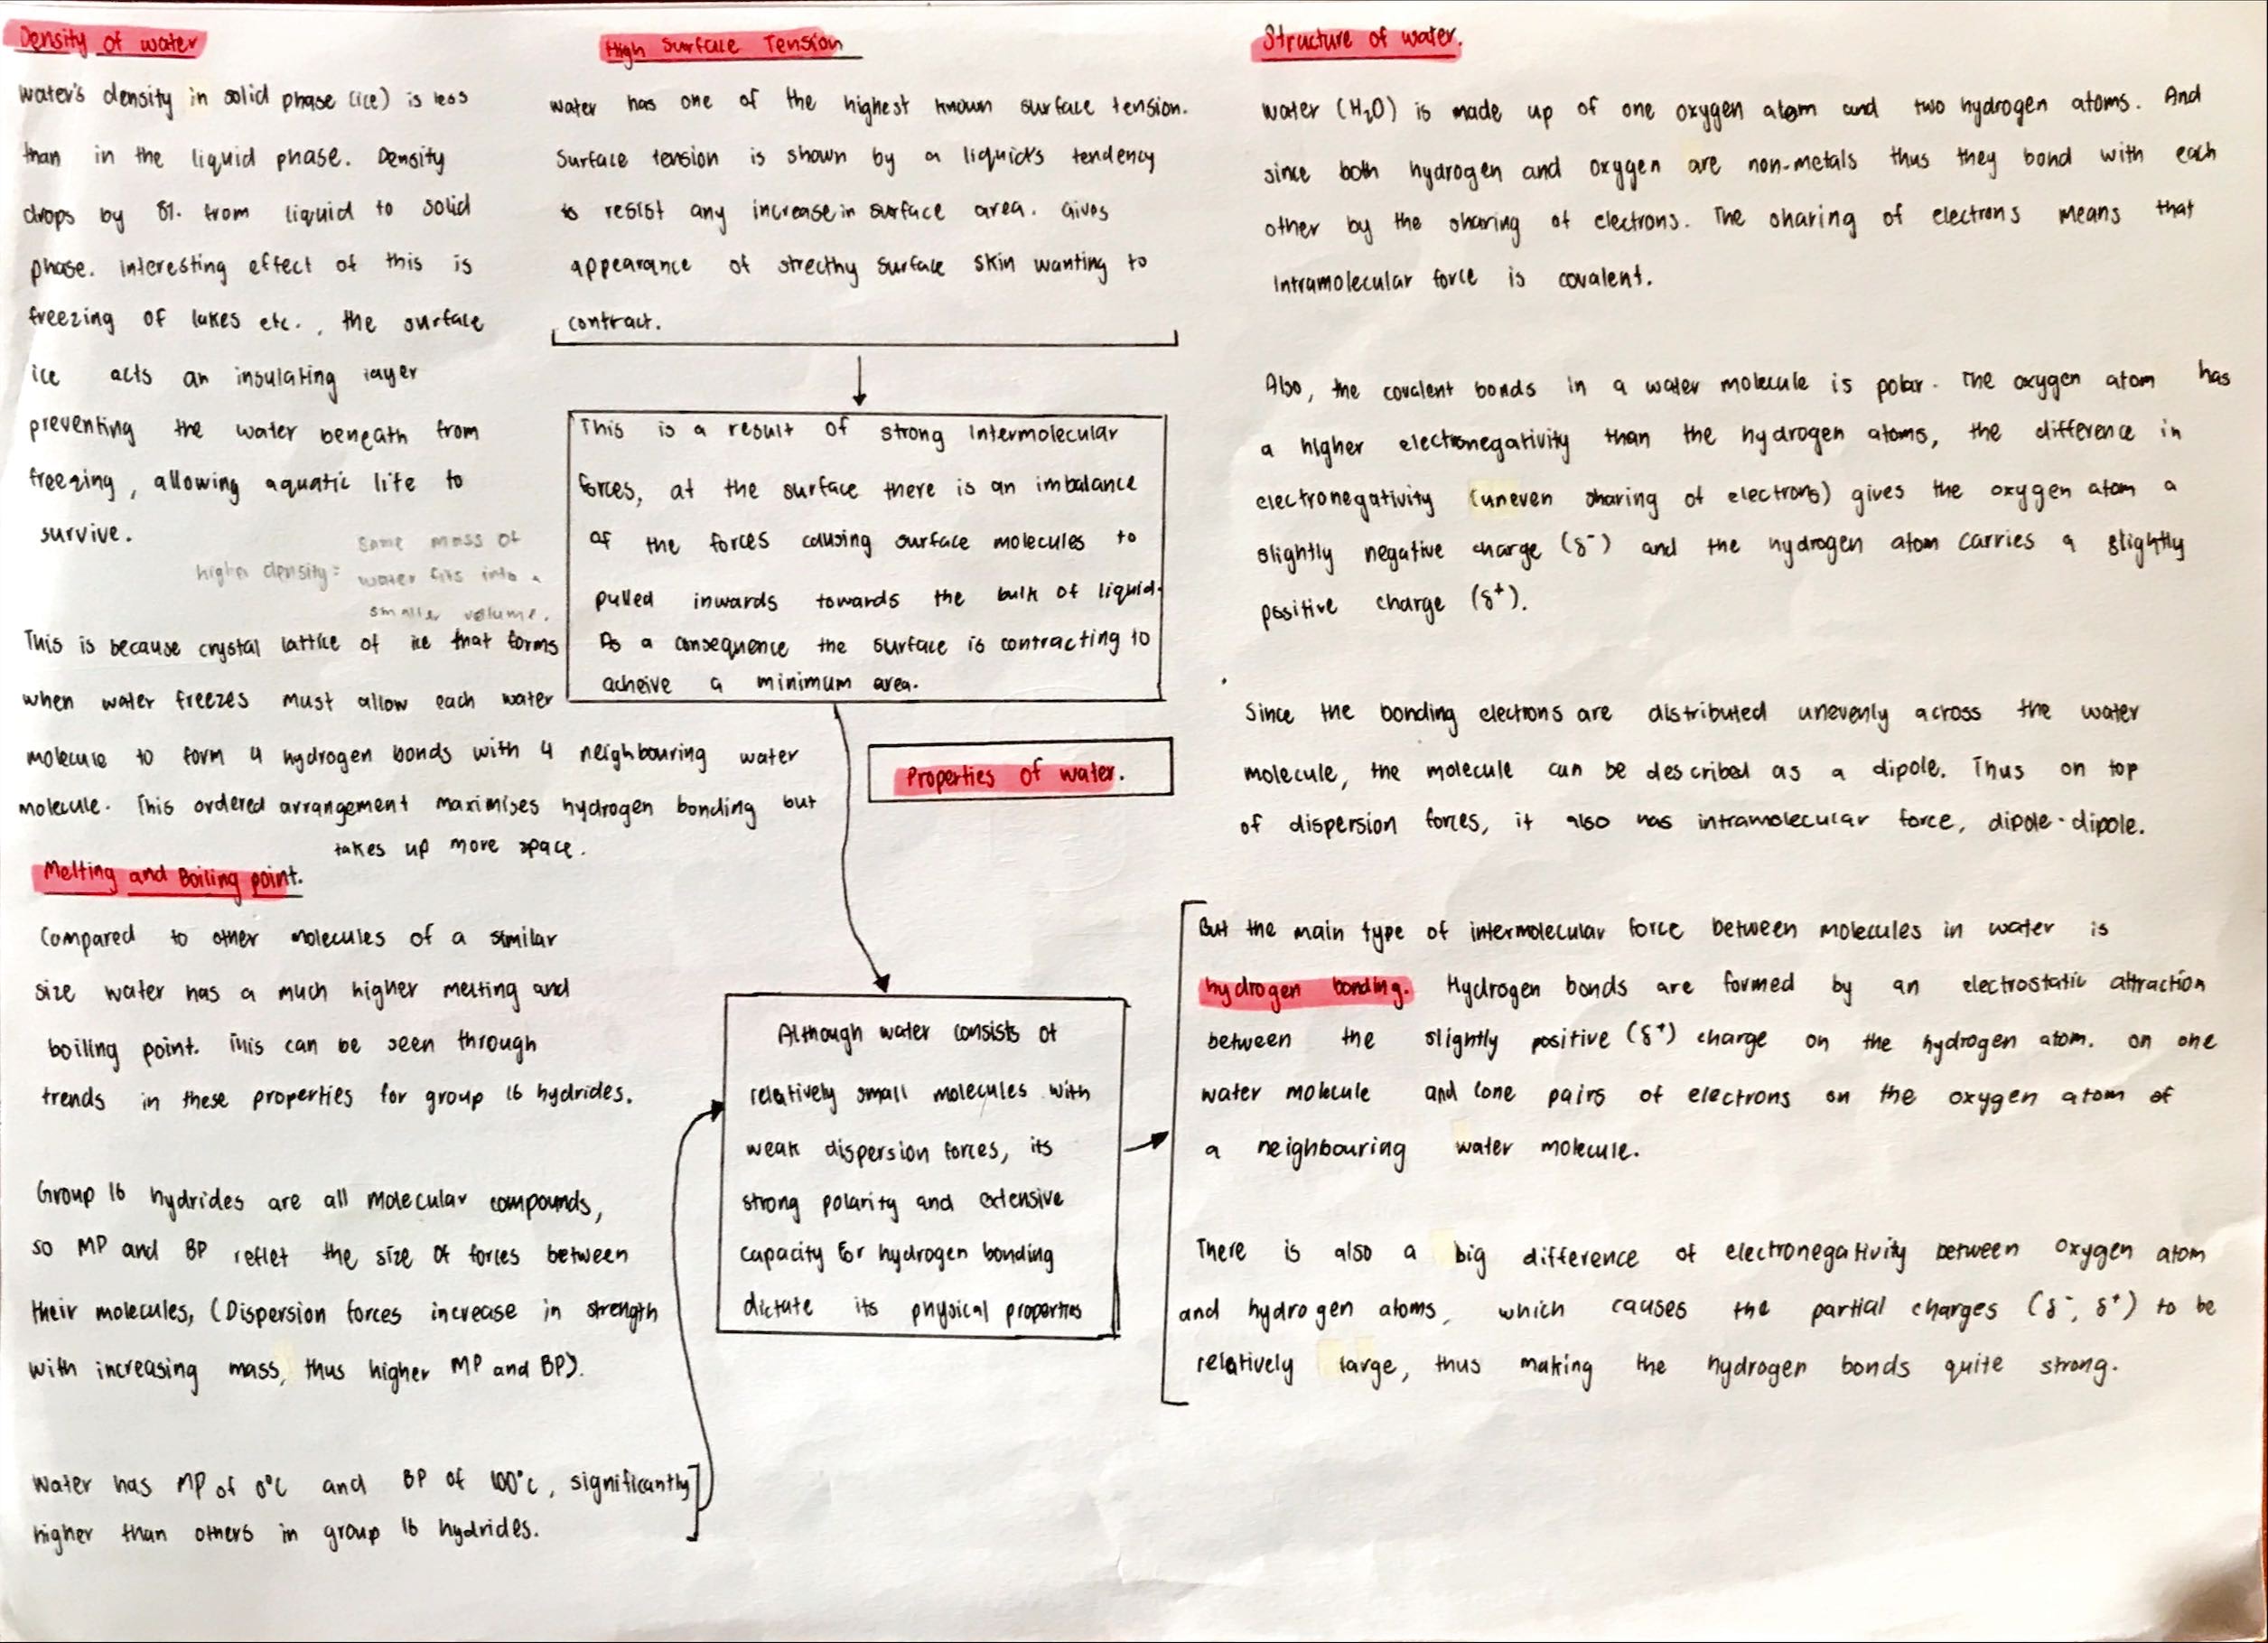 Density of water
Water's density in solid phase (ice) is less
than in the liquid phase. Density
drops by 8% from liquid to solid
phase. Interesting effect of this is
freezing of lakes etc., the surface
ice acts an insulating layer
preventing the water beneath from
freezing, allowing aquatic life to
survive.
higher density = same mass of
water fits into a
smaller volume.
This is because crystal lattice of ice that forms
when water freezes must allow each water
molecule to form 4 hydrogen bonds with 4 neighbouring water
molecule. This ordered arrangement maximises hydrogen bonding but
takes up more space.
Melting and Boiling point.
Compared to other molecules of a similar
size water has a much higher melting and
boiling point. This can be seen through
trends in these properties for group 16 hydrides.
Group 16 hydrides are all molecular compounds,
so MP and BP reflet the size of forces between
their molecules, (Dispersion forces increase in strength
with increasing mass, thus higher MP and BP).
Water has MP of 0°C and BP of 100°C, significantly
higher than others in group 16 hydrides.
High Surface Tension
Water has one of the highest known surface tension.
Surface tension is shown by a liquid's tendency
to resist any increase in surface area. Gives
appearance of strecthy surface skin wanting to
contract.
This is a result of strong intermolecular
forces, at the surface there is an imbalance
of the forces causing surface molecules to
pulled inwards towards the bulk of liquid.
As a consequence the surface is contracting to
acheive a minimum area.
Properties of water.
Although water consists of
relatively small molecules with
weak dispersion forces, its
strong polarity and extensive
capacity for hydrogen bonding
dictate its physical properties
Structure of water.
Water (H₂O) is made up of one oxygen atom and two hydrogen atoms. And
since both hydrogen and oxygen are non-metals thus they bond with each
other by the sharing of electrons. The sharing of electrons means that
Intramolecular force is covalent.
Also, the covalent bonds in a water molecule is polar. The oxygen atom has
a higher electronegativity than the hydrogen atoms, the difference in
electronegativity (uneven sharing of electrons) gives the oxygen atom a
slightly negative charge (δ⁻) and the hydrogen atom carries a slightly
positive charge (δ⁺).
Since the bonding electrons are distributed unevenly across the water
molecule, the molecule can be described as a dipole. Thus on top
of dispersion forces, it also has intramolecular force, dipole-dipole.
But the main type of intermolecular force between molecules in water is
hydrogen bonding. Hydrogen bonds are formed by an electrostatic attraction
between the slightly positive (δ⁺) charge on the hydrogen atom. on one
water molecule and lone pairs of electrons on the oxygen atom of
a neighbouring water molecule.
There is also a big difference of electronegativity between oxygen atom
and hydrogen atoms, which causes the partial charges (δ⁻, δ⁺) to be
relatively large, thus making the hydrogen bonds quite strong.